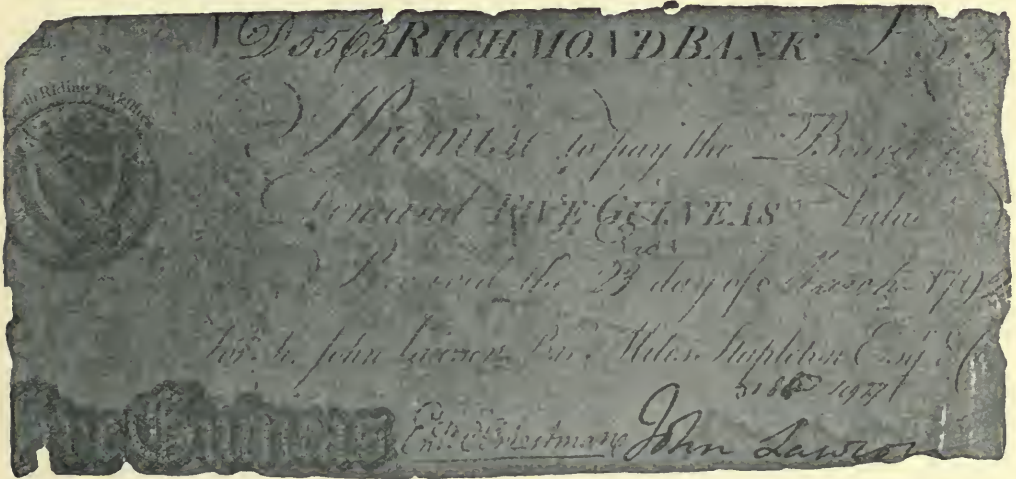 No D5565 RICHMOND BANK £ 5.5
North Riding Yorkshire
I Promise to pay the Bearer on
Demand FIVE GUINEAS Value
Received the 23 day of March 179
For Sr. John Lawson Bar. Miles Stapleton Esqr. & C
Five Guineas
Entd John Lawson